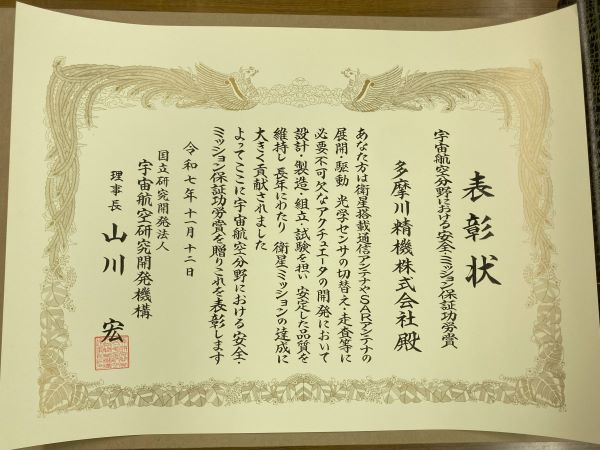 表彰状
宇宙航空分野における安全・ミッション保証功労賞
多摩川精機株式会社殿
あなた方は衛星搭載通信アンテナやSARアンテナの
展開・駆動 光学センサの切替え・走査等に
必要不可欠なアクチュエータの開発において
設計・製造・組立・試験を担い 安定した品質を
維持し 長年にわたり 衛星ミッションの達成に
大きく貢献されました
よってここに宇宙航空分野における安全・
ミッション保証功労賞を贈りこれを表彰します
令和七年十一月十二日
国立研究開発法人
宇宙航空研究開発機構
理事長 山川 宏